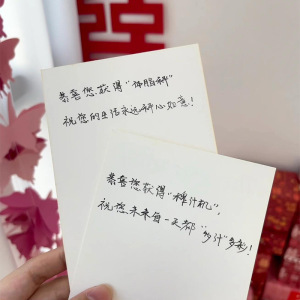 囍
恭喜您获得“体脂秤”
祝您的生活永远秤心如意！
恭喜您获得“榨汁机”，
祝您未来每一天都“多汁”多彩！